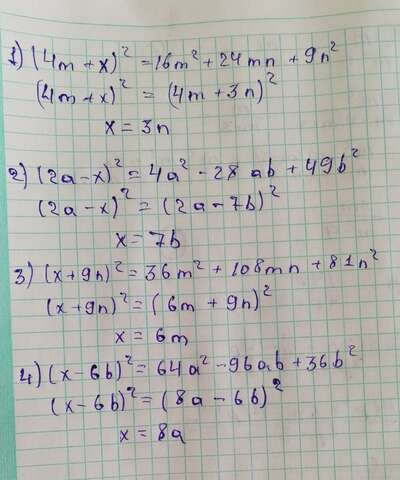 1) (4m + x)² = 16m² + 24mn + 9n²
(4m + x)² = (4m + 3n)²
x = 3n
2) (2a - x)² = 4a² - 28 ab + 49b²
(2a - x)² = (2a - 7b)²
x = 7b
3) (x + 9n)² = 36m² + 108mn + 81n²
(x + 9n)² = (6m + 9n)²
x = 6m
4) (x - 6b)² = 64a² - 96ab + 36b²
(x - 6b)² = (8a - 6b)²
x = 8a